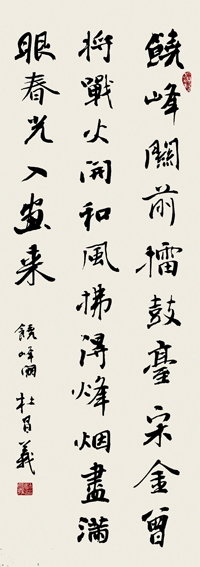 饒峰關前擂鼓臺宋金曾
將戰火開和風拂得烽烟盡滿
眼春光入畫来
饒峰關杜昌義